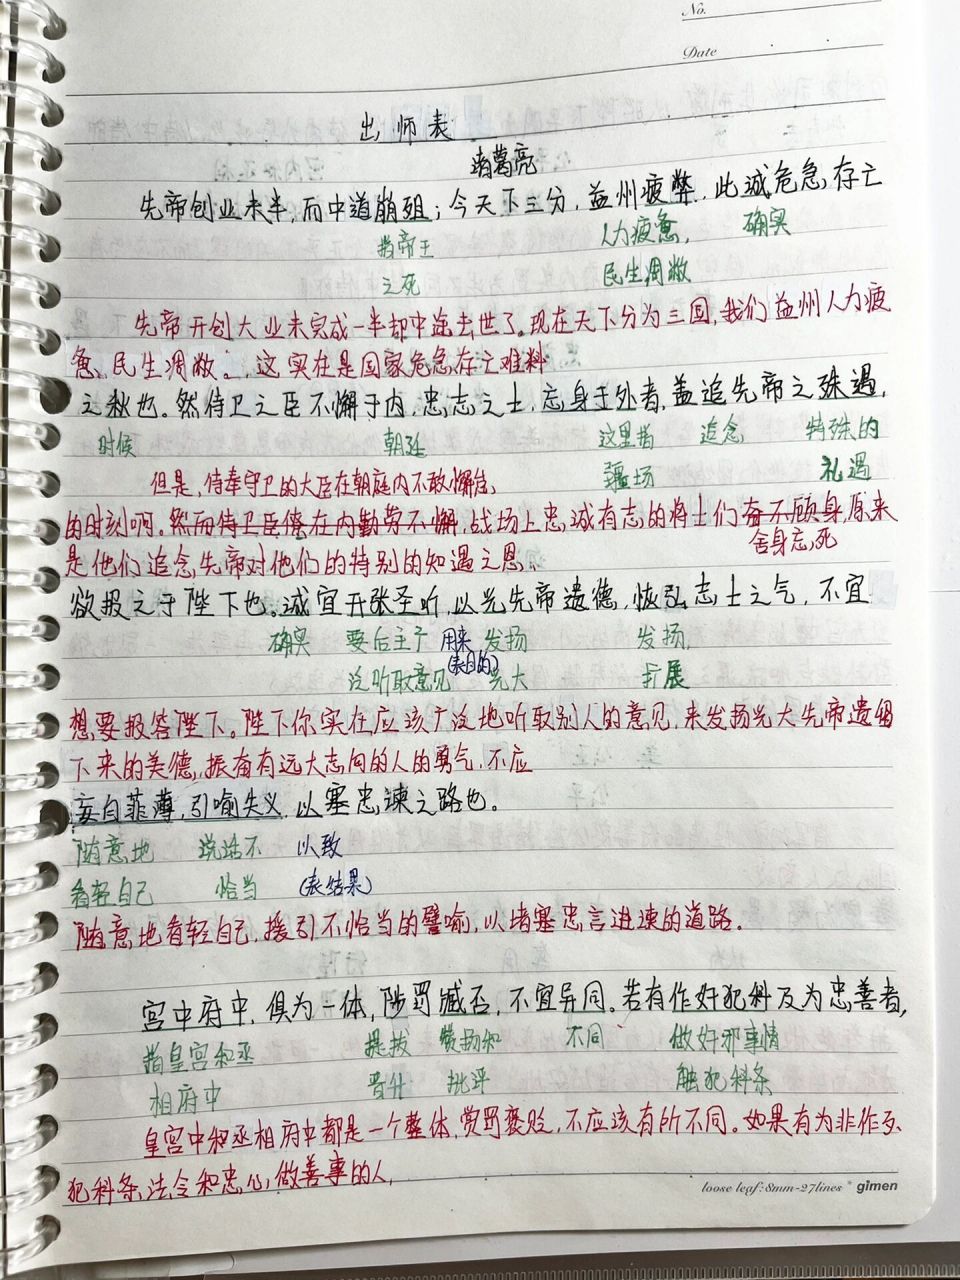 No.
Date
出师表
诸葛亮
先帝创业未半,而中道崩殂;今天下三分,益州疲弊,此诚危急存亡
指帝王 人力疲惫, 确实
之死 民生凋敝
先帝开创大业未完成一半却中途去世了。现在天下分为三国,我们益州人力疲
惫、民生凋敝;,这实在是国家危急存亡难料
之秋也。然侍卫之臣不懈于内,忠志之士,忘身于外者,盖追先帝之殊遇,
时候 朝廷 这里指 追念 特殊的
疆场 礼遇
但是,侍奉守卫的大臣在朝庭内不敢懈怠,
的时刻啊。然而侍卫臣僚在内勤劳不懈,战场上忠诚有志的将士们奋不顾身,原来
舍身忘死
是他们追念先帝对他们的特别的知遇之恩。
欲报之于陛下也。诚宜开张圣听,以光先帝遗德,恢弘志士之气,不宜
确实 要后主广 用来 发扬 发扬,
泛听取意见 (表目的) 光大 扩展
想要报答陛下。陛下你实在应该广泛地听取别人的意见,来发扬光大先帝遗留
下来的美德,振奋有远大志向的人的勇气,不应
妄自菲薄,引喻失义,以塞忠谏之路也。
随意地 说话不 以致
看轻自己 恰当 (表结果)
随意地看轻自己,援引不恰当的譬喻,以堵塞忠言进谏的道路。
宫中府中,俱为一体,陟罚臧否,不宜异同。若有作奸犯科及为忠善者,
指皇宫和丞 提拔 赞扬和 不同 做奸邪事情
相府中 晋升 批评 触犯科条
皇宫中和丞相府中都是一个整体,赏罚褒贬,不应该有所不同。如果有为非作歹
犯科条法令和忠心做善事的人,
loose leaf:8mm-27lines * gimen